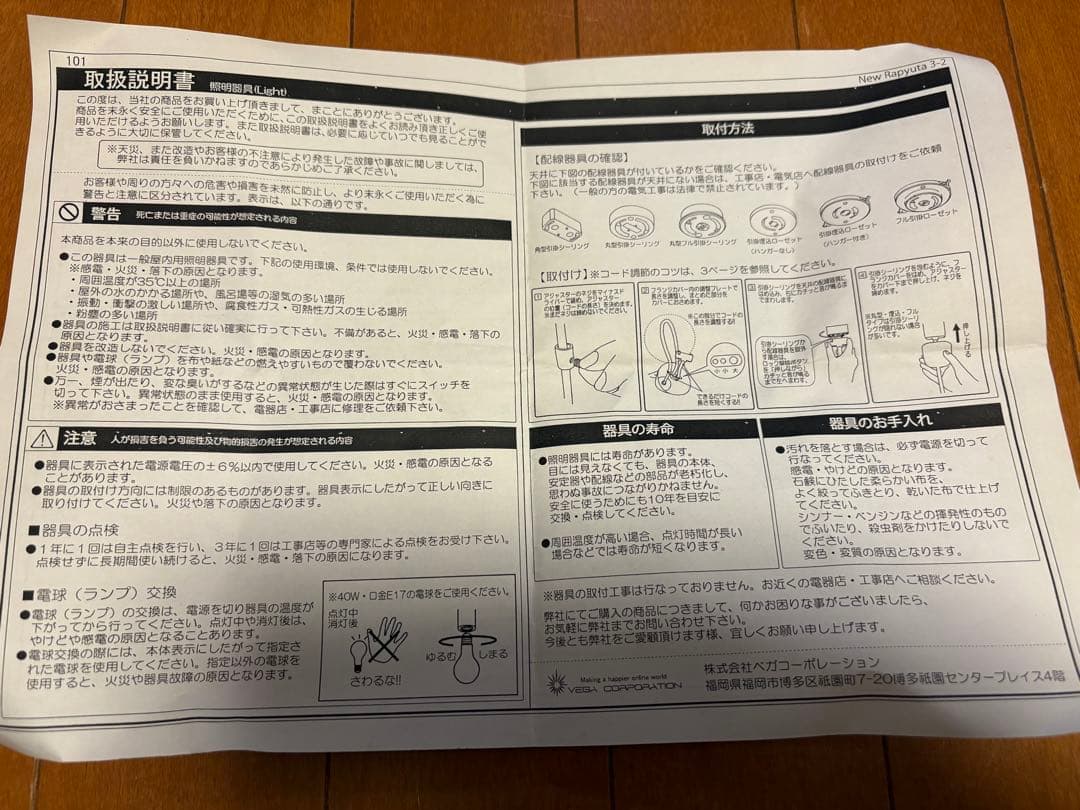 101
取扱説明書 照明器具(Light)
この度は、当社の商品をお買い上げ頂きまして、まことにありがとうございます。
商品を末永く安全にご使用いただくために、この取扱説明書をよくお読み頂き正しくご使
用いただけるようお願いします。また取扱説明書は、必要に応じていつでも見ることがで
きるように大切に保管してください。
※天災、また改造やお客様の不注意により発生した故障や事故に関しましては、
弊社は責任を負いかねますのであらかじめご了承ください。
お客様や周りの方々への危害や損害を未然に防止し、より末永くご使用いただく為に
警告と注意に区分されています。表示は、以下の通りです。
警告 死亡または重症の可能性が想定される内容
本商品を本来の目的以外に使用しないでください。
●この器具は一般屋内用照明器具です。下記の使用環境、条件では使用しないでください。
※感電・火災・落下の原因となります。
・周囲温度が35℃以上の場所
・屋外の水のかかる場所や、風呂場等の湿気の多い場所
・振動・衝撃の激しい場所や、腐食性ガス・可熱性ガスの生じる場所
・粉塵の多い場所
●器具の施工は取扱説明書に従い確実に行って下さい。不備があると、火災・感電・落下の
原因となります。
●器具を改造しないでください。火災・感電の原因となります。
●器具や電球(ランプ)を布や紙などの燃えやすいもので覆わないでください。
火災・感電の原因となります。
●万一、煙が出たり、変な臭いがするなどの異常状態が生じた際はすぐにスイッチを
切って下さい。異常状態のまま使用すると、火災・感電の原因となります。
※異常がおさまったことを確認して、電器店・工事店に修理をご依頼下さい。
注意 人が損害を負う可能性及び物的損害の発生が想定される内容
●器具に表示された電源電圧の±6%以内で使用してください。火災・感電の原因となる
ことがあります。
●器具の取付け方向には制限のあるものがあります。器具表示にしたがって正しい向きに
取り付けてください。火災や落下の原因となります。
■器具の点検
●1年に1回は自主点検を行い、3年に1回は工事店等の専門家による点検をお受け下さい。
点検せずに長期間使い続けると、火災・感電・落下の原因になります。
■電球(ランプ)交換
●電球(ランプ)の交換は、電源を切り器具の温度が
下がってから行ってください。点灯中や消灯後は、
やけどや感電の原因となることあります。
●電球交換の際には、本体表示にしたがって指定さ
れた電球を使用してください。指定以外の電球を
使用すると、火災や器具故障の原因となります。
※40W・口金E17の電球をご使用ください。
点灯中
消灯後
さわるな!!
ゆるむ しまる
New Rapyuta 3-2
取付方法
【配線器具の確認】
天井に下図の配線器具が付いているかをご確認ください。
下図に該当する配線器具が天井にない場合は、工事店・電気店へ配線器具の取付けをご依頼
下さい。(一般の方の電気工事は法律で禁止されています。)
角型引掛シーリング
丸型引掛シーリング
丸型フル引掛シーリング
引掛埋込ローゼット
(ハンガーなし)
引掛埋込ローゼット
(ハンガー付き)
フル引掛ローゼット
【取付け】※コード調節のコツは、3ページを参照してください。
1 アジャスターのネジをマイナスド
ライバーで緩め、アジャスター
の位置(コードの長さ)を決めます。
※まだネジは締めないでください。
2 フランジカバー内の調整プレートで
長さを調整し、まとめた部分を
カバーにおさめます。
※この部分でコードの
長さを調整する!!
小 小 大
できるだけコードの
長さを短くする!!
3 引掛シーリングを天井の配線器具に
はめ込み、右にカチッと音が鳴るま
でまわします。
引掛シーリングか
ら配線器具を取外
す場合は、
ロック解除ボタンを
「押しながら」
カチッと音が鳴る
まで左へまわす。
4 引掛シーリングを包むように、フ
ランジカバーをはめ、アジャスター
をカバー下まで押し上げ、ネジを
締めます。
※丸型・埋込・フル
タイプは引掛シーリ
ングが隠れない場合
が多いです。
押し上げる
器具の寿命
●照明器具には寿命があります。
目には見えなくても、器具の本体、
安定器や配線などの部品が老朽化し、
思わぬ事故につながりかねません。
安全に使うためにも10年を目安に
交換・点検してください。
●周囲温度が高い場合、点灯時間が長い
場合などでは寿命が短くなります。
器具のお手入れ
●汚れを落とす場合は、必ず電源を切って
行なってください。
感電・やけどの原因となります。
石鹸にひたした柔らかい布を、
よく絞ってふきとり、乾いた布で仕上げ
てください。
シンナー・ベンジンなどの揮発性のもの
でふいたり、殺虫剤をかけたりしないで
ください。
変色・変質の原因となります。
※器具の取付工事は行なっておりません。お近くの電器店・工事店へご相談ください。
弊社にてご購入の商品につきまして、何かお困りな事がございましたら、
お気軽に弊社までお問い合わせ下さい。
今後とも弊社をご愛顧頂けます様、宜しくお願い申し上げます。
Making a happier online world
VEGA CORPORATION
株式会社ベガコーポレーション
福岡県福岡市博多区祇園町7-20博多祇園センタープレイス4階